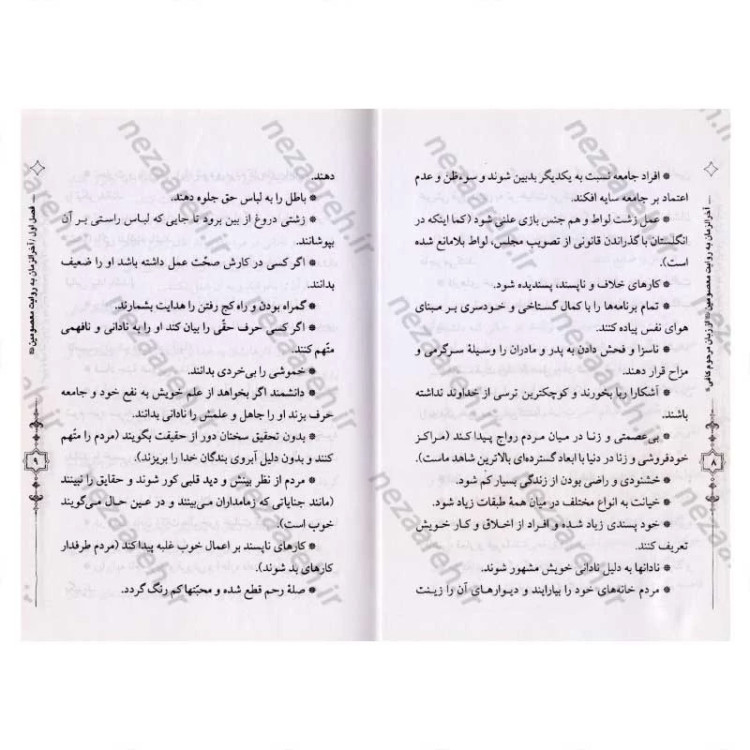 — آخرالزمان به روایت معصومین از زبان مرحوم کافی
۸
● افراد جامعه نسبت به یکدیگر بدبین شوند و سوءظن و عدم
اعتماد بر جامعه سایه افکند.
● عمل زشت لواط و هم جنس بازی علنی شود (کما اینکه در
انگلستان با گذراندن قانونی از تصویب مجلس، لواط بلامانع شده
است).
● کارهای خلاف و ناپسند، پسندیده شود.
● تمام برنامه‌ها را با کمال گستاخی و خودسری بر مبنای
هوای نفس پیاده کنند.
● ناسزا و فحش دادن به پدر و مادران را وسیلهٔ سرگرمی و
مزاح قرار دهند.
● آشکارا ربا بخورند و کوچکترین ترسی از خداوند نداشته
باشند.
● بی‌عصمتی و زنا در میان مردم رواج پیدا کند (مراکز
خودفروشی و زنا در دنیا با ابعاد گسترده‌ای بالاترین شاهد ماست).
● خشنودی و راضی بودن از زندگی بسیار کم شود.
● خیانت به انواع مختلف در میان همهٔ طبقات زیاد شود.
● خود پسندی زیاد شده و افراد از اخلاق و کار خویش
تعریف کنند.
● نادانها به دلیل نادانی خویش مشهور شوند.
● مردم خانه‌های خود را بیارایند و دیوارهای آن را زینت
دهند.
● باطل را به لباس حق جلوه دهند.
● زشتی دروغ از بین برود تا جایی که لباس راستی بر آن
بپوشانند.
● اگر کسی در کارش صحّت عمل داشته باشد او را ضعیف
بدانند.
● گمراه بودن و راه کج رفتن را هدایت بشمارند.
● اگر کسی حرف حقّی را بیان کند او را به نادانی و نافهمی
متّهم کنند.
● خموشی را بی‌خردی بدانند.
● دانشمند اگر بخواهد از علم خویش به نفع خود و جامعه
حرف بزند او را جاهل و علمش را نادانی بدانند.
● بدون تحقیق سخنان دور از حقیقت بگویند (مردم را متّهم
کنند و بدون دلیل آبروی بندگان خدا را بریزند).
● مردم از نظر بینش و دید قلبی کور شوند و حقایق را نبینند
(مانند جنایاتی که زمامداران می‌بینند و در عین حال می‌گویند
خوب است).
● کارهای ناپسند بر اعمال خوب غلبه پیدا کند (مردم طرفدار
کارهای بد شوند).
● صلهٔ رحم قطع شده و محبّتها کم رنگ گردد.
— فصل اول / آخرالزمان به روایت معصومین
۹
nezaareh.ir